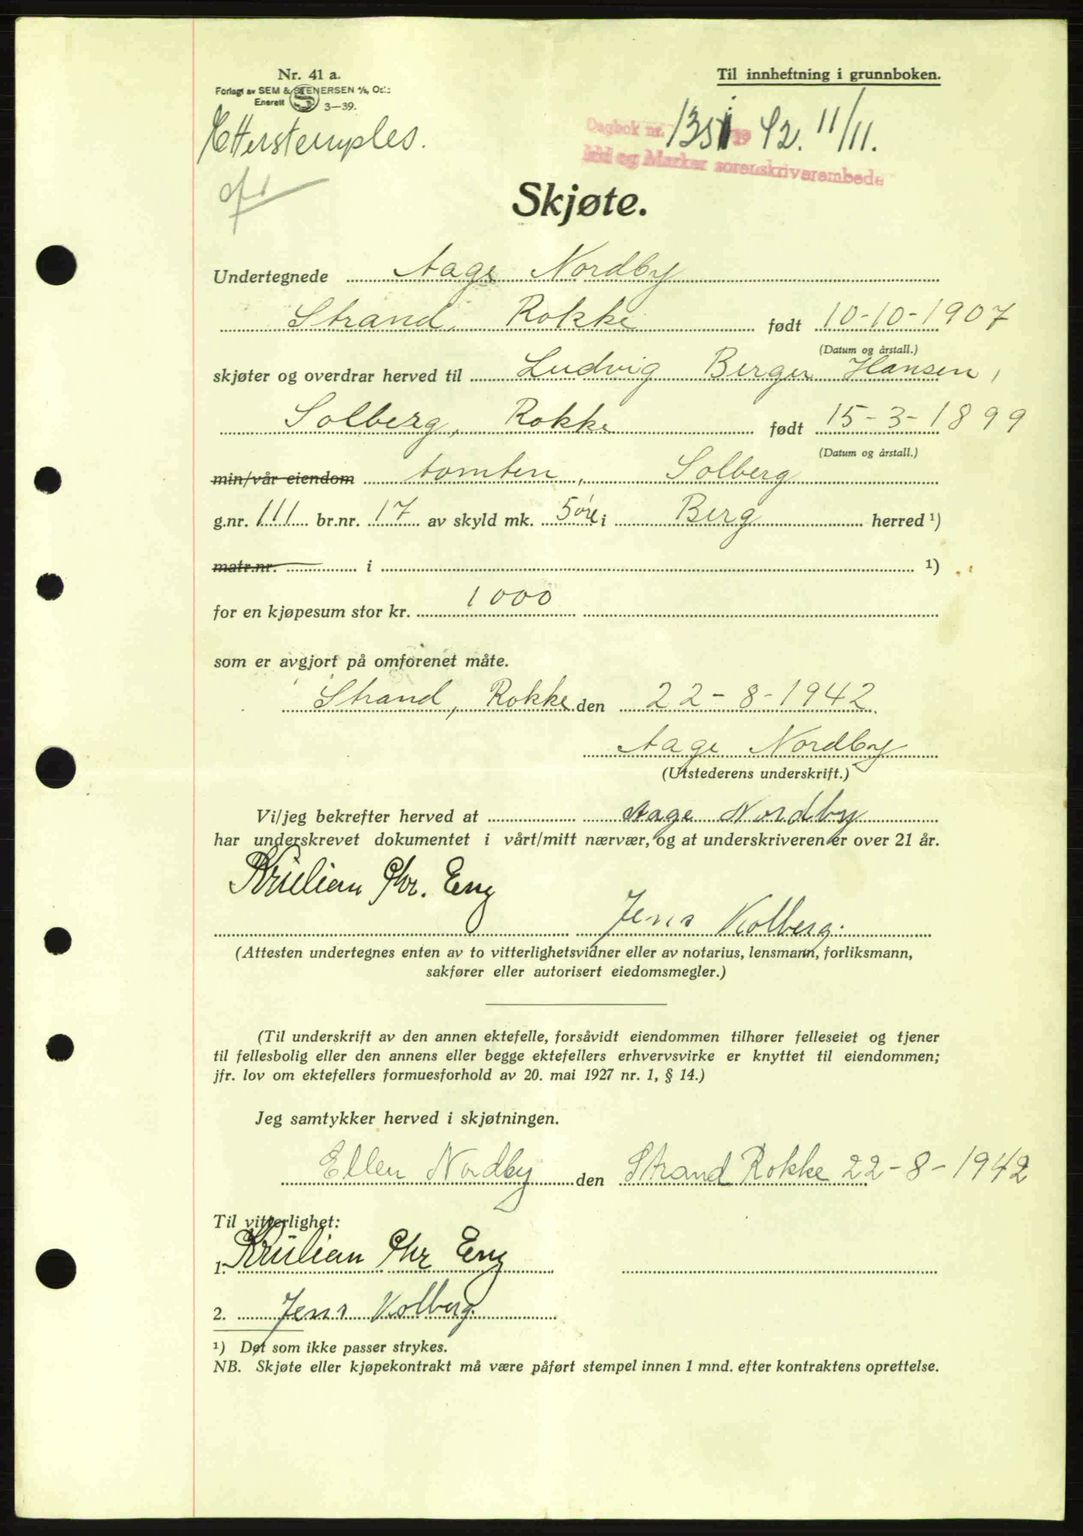 Nr. 41 a.
Til innheftning i grunnboken.
Forlagt av SEM & STENERSEN A/S, Oslo
Enerett 3—39.
Etterstemples.
Dagbok nr. 1351 19 42. 11/11.
Idd og Marker sorenskriverembede
Skjøte.
Undertegnede Aage Nordby
Strand, Rokke født 10-10-1907
(Datum og årstall.)
skjøter og overdrar herved til Ludvig Berger Hansen,
Solberg, Rokke født 15-3-1899
(Datum og årstall.)
min/vår eiendom tomten, Solberg
g.nr. 111 br.nr. 17 av skyld mk. 5 øre i Berg herred ¹)
matr.nr. i ¹)
for en kjøpesum stor kr. 1000
som er avgjort på omforenet måte.
Strand, Rokke den 22-8-1942.
Aage Nordby
(Utstederens underskrift.)
Vi/jeg bekrefter herved at Aage Nordby
har underskrevet dokumentet i vårt/mitt nærvær, og at underskriveren er over 21 år.
Kristian Chr. Eng
Jens Kolberg.
(Attesten undertegnes enten av to vitterlighetsvidner eller av notarius, lensmann, forliksmann,
sakfører eller autorisert eiedomsmegler.)
(Til underskrift av den annen ektefelle, forsåvidt eiendommen tilhører felleseiet og tjener
til fellesbolig eller den annens eller begge ektefellers erhvervsvirke er knyttet til eiendommen;
jfr. lov om ektefellers formuesforhold av 20. mai 1927 nr. 1, § 14.)
Jeg samtykker herved i skjøtningen.
Ellen Nordby den Strand Rokke 22-8-1942
Til vitterlighet:
1. Kristian Chr Eng
2. Jens Kolberg.
¹) Det som ikke passer strykes.
NB. Skjøte eller kjøpekontrakt må være påført stempel innen 1 mnd. efter kontraktens oprettelse.